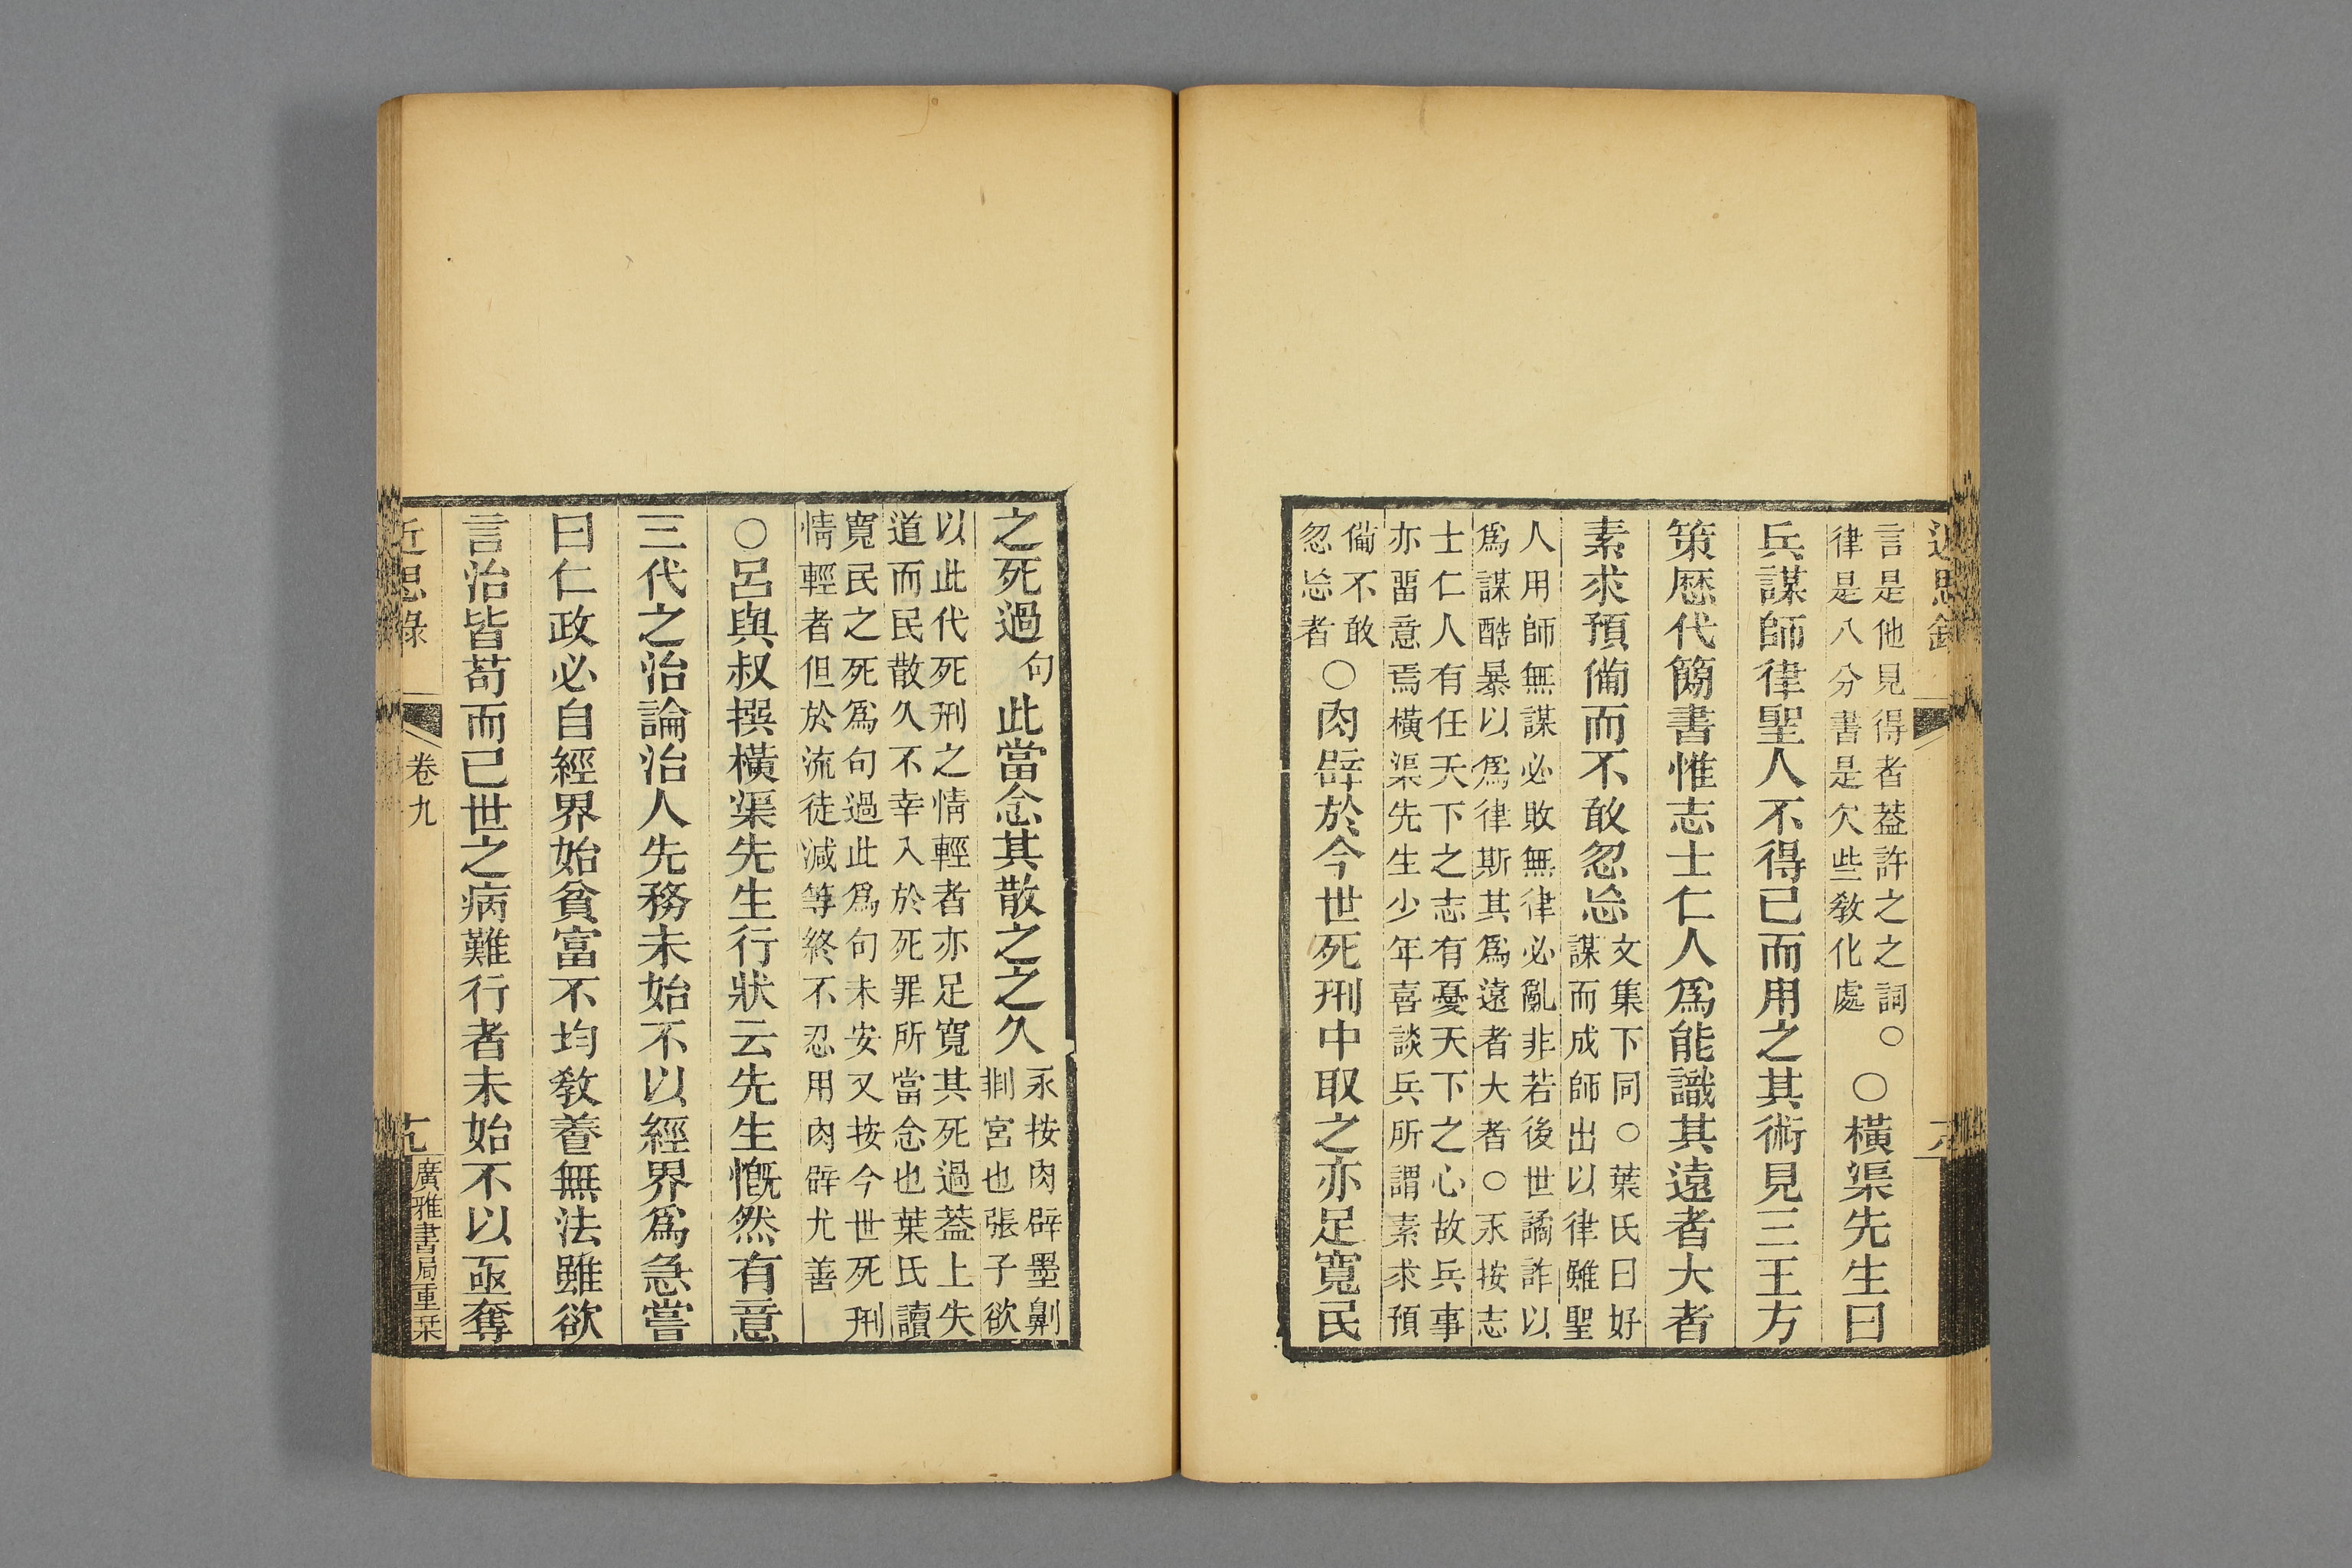 言是他見得者葢許之之詞○
律是八分書是欠些敎化處
○橫渠先生曰
兵謀師律聖人不得已而用之其術見三王方
策歷代簡書惟志士仁人爲能識其遠者大者
素求預備而不敢忽忘
文集下同○葉氏曰好
謀而成師出以律雖聖
人用師無謀必敗無律必亂非若後世譎詐以
爲謀酷暴以爲律斯其爲遠者大者○永按志
士仁人有任天下之志有憂天下之心故兵事
亦畱意焉橫渠先生少年喜談兵所謂素求預
備不敢
忽忘者
○肉辟於今世死刑中取之亦足寬民
之死過
句
此當念其散之之久
永按肉辟墨劓
剕宮也張子欲
以此代死刑之情輕者亦足寬其死過葢上失
道而民散久不幸入於死罪所當念也葉氏讀
寬民之死爲句過此爲句未安又按今世死刑
情輕者但於流徒減等終不忍用肉辟尤善
○呂與叔撰橫渠先生行狀云先生慨然有意
三代之治論治人先務未始不以經界爲急嘗
曰仁政必自經界始貧富不均敎養無法雖欲
言治皆苟而已世之病難行者未始不以亟奪
近思錄
卷九
廣雅書局重栞